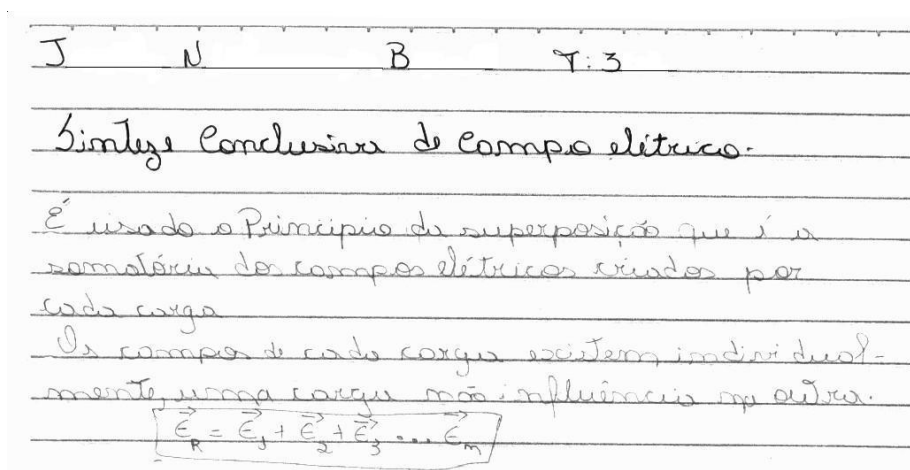 J N B T: 3
Sinteze Conclusiva de Campo elétrico.
É usado o Principio da superposição que é a
somatória dos campos elétricos criados por
cada carga
Os campos de cada carga existem individual-
mente, uma carga não influência na outra.
E⃗_R = E⃗_1 + E⃗_2 + E⃗_3 .... E⃗_n